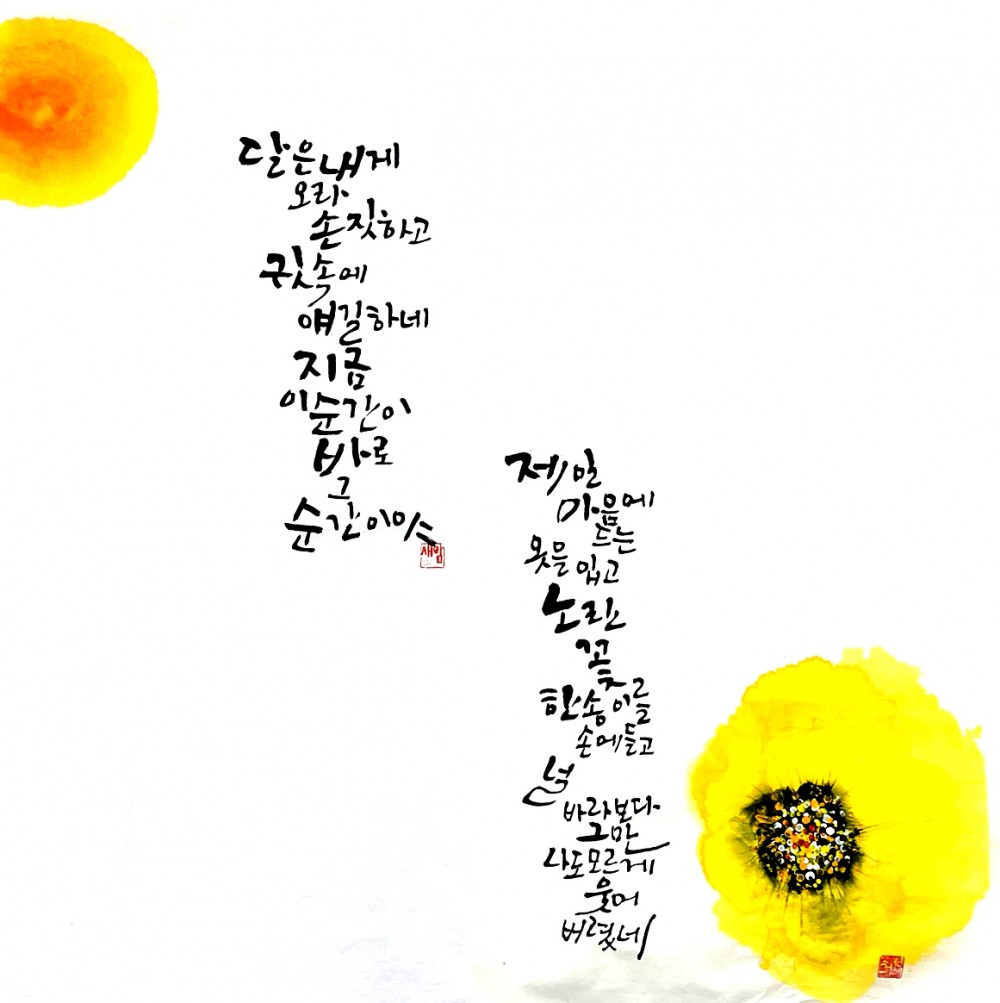 달은 내게
오라
손짓하고
귓속에
얘길하네
지금
이순간이
바로
그
순간이야
새밈
제일
마음에
드는
옷을 입고
노란
꽃
한송이를
손에들고
널
바라보다
그만
나도모르게
웃어
버렸네